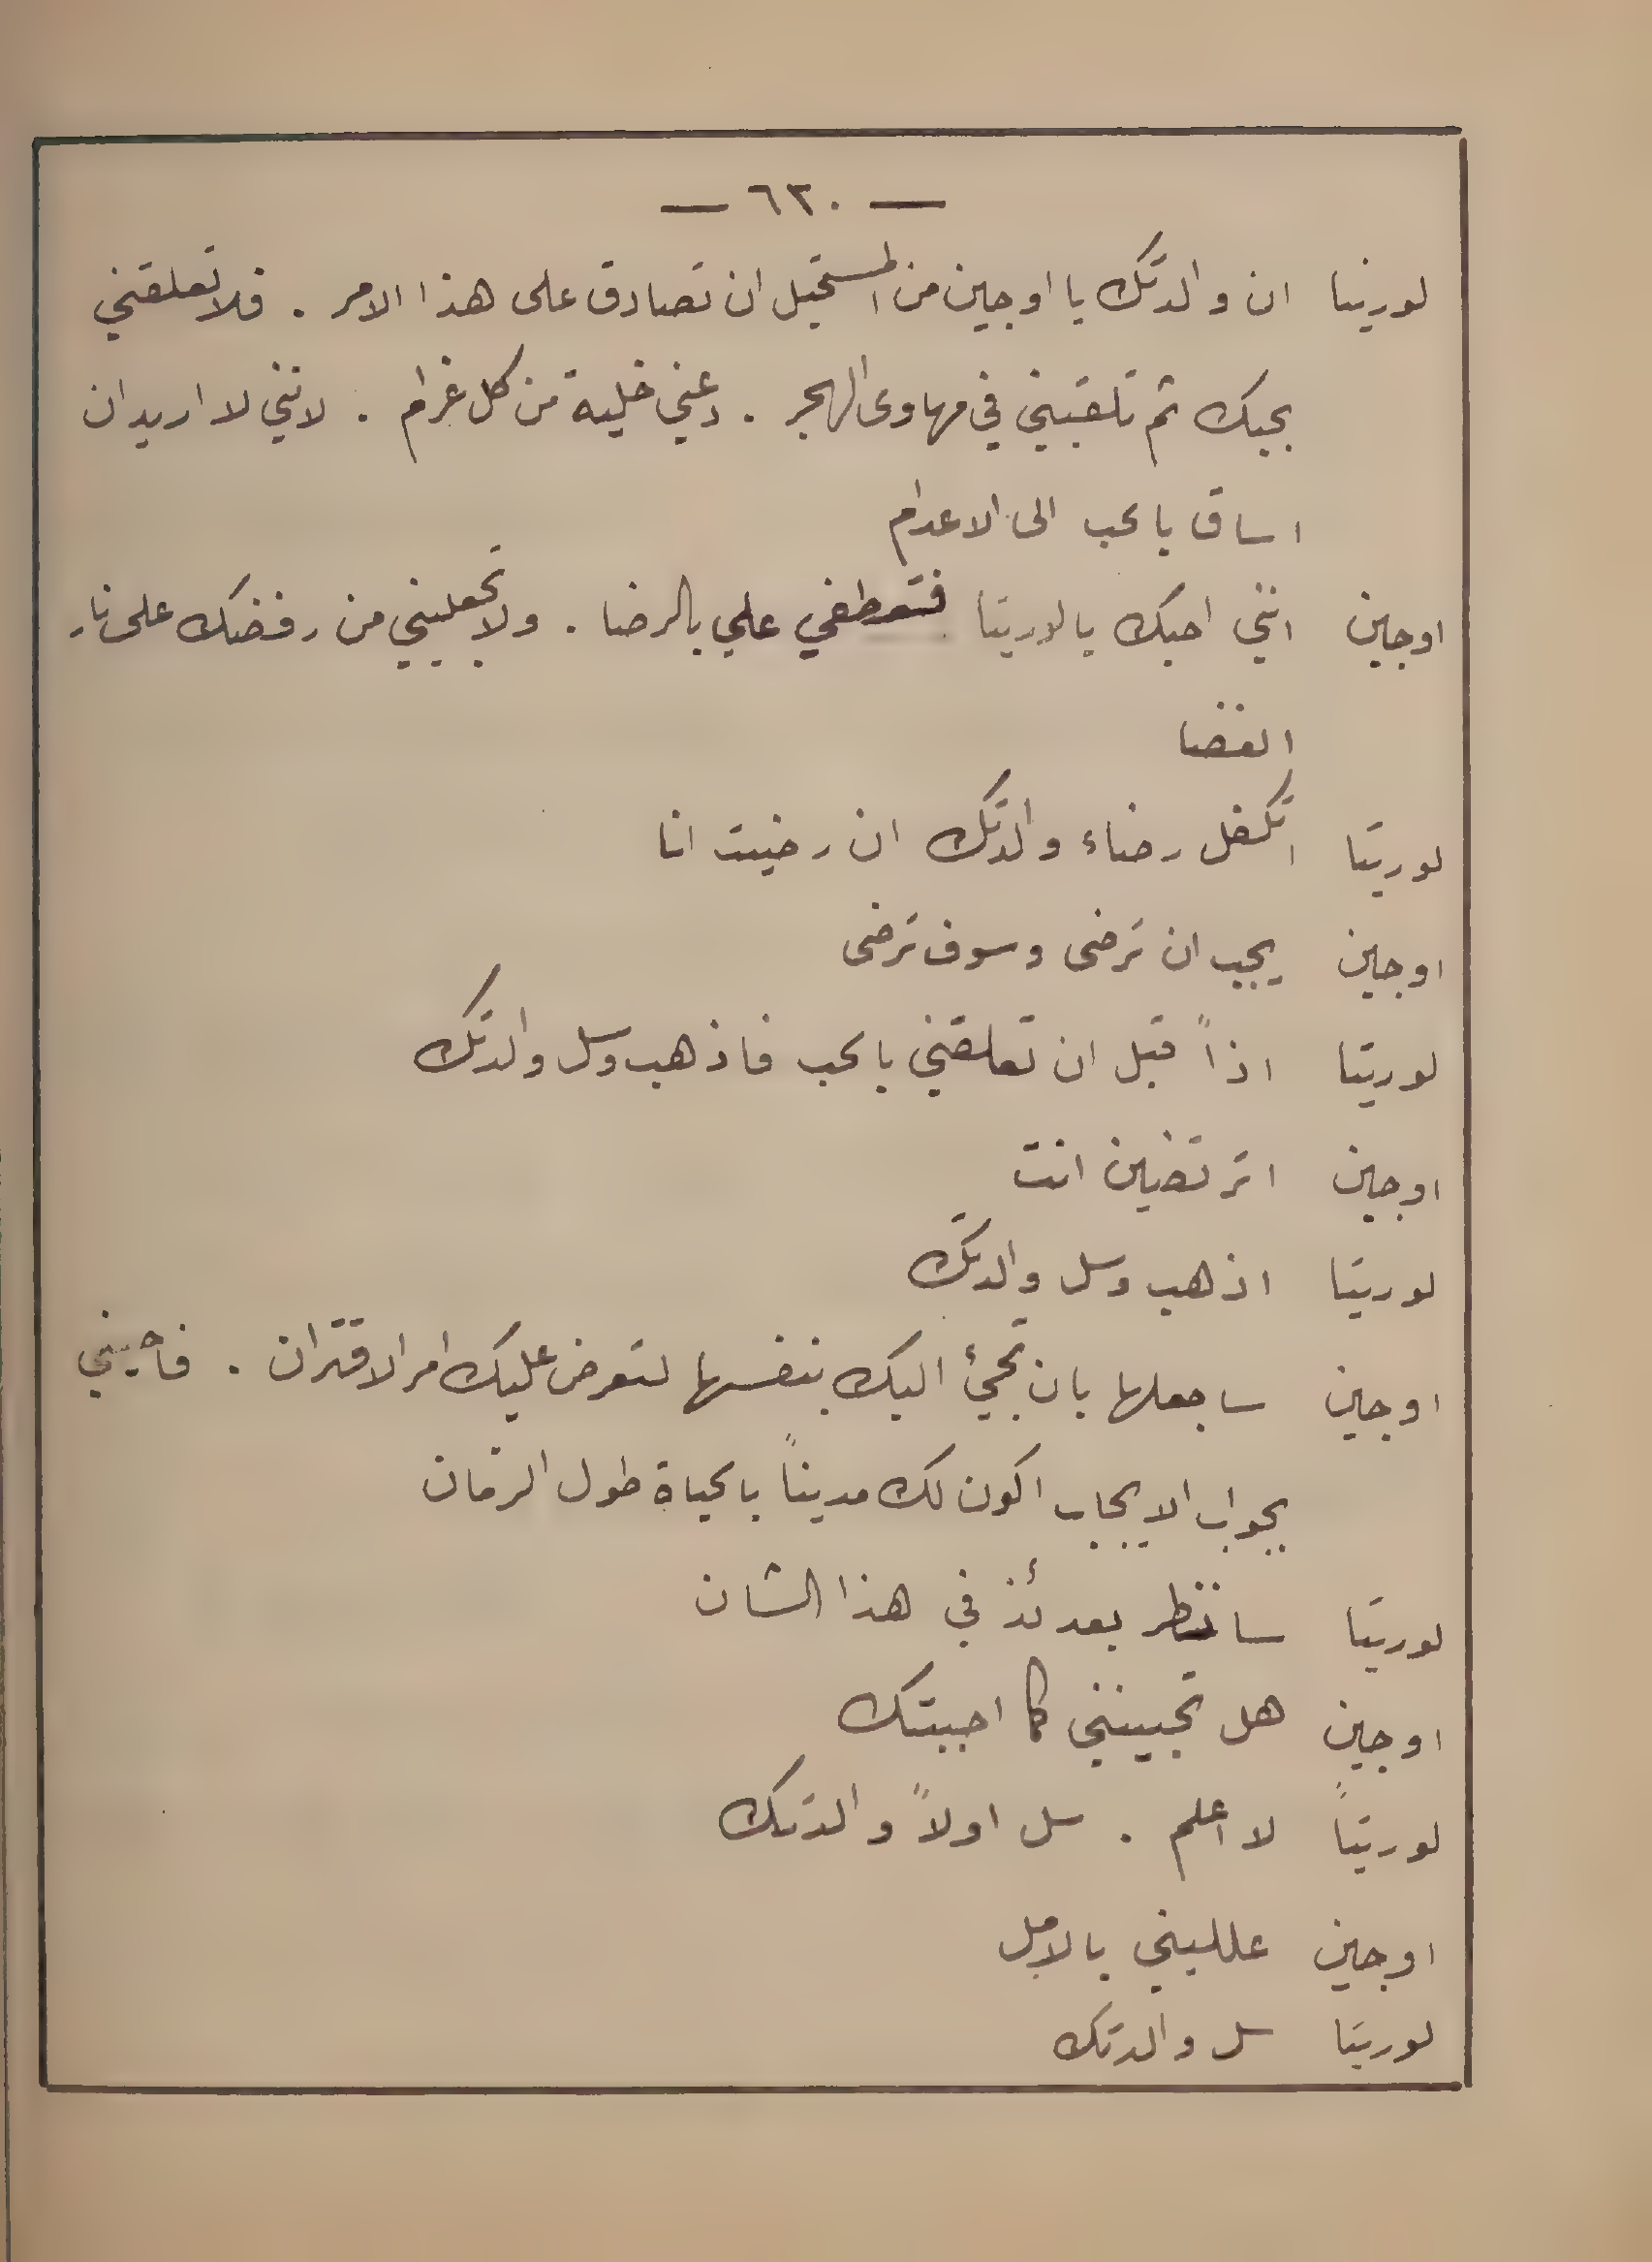 — ٦٢٠ —
لوريتا ان والدتك يا اوجين من المستحيل ان تصادق على هذا الامر . فلا تعلقني
بحبك ثم تلقيني في مهاوى الهجر . دعني خلية من كل غرام . لانني لا اريد ان
اساق بالحب الى الاعدام
اوجين انني احبك يالوريتا فتعطفي علي بالرضا . ولا تجعليني من رفضك على نار
الغضا
لوريتا اتكفل رضاء والدتك ان رضيت انا
اوجين يجب ان ترضى وسوف ترضى
لوريتا اذاً قبل ان تعلقني بالحب فاذهب وسل والدتك
اوجين اترتضين انت
لوريتا اذهب وسل والدتك
اوجين ساجعلها بان تجيئ اليك بنفسها لتعرض عليك امر الاقتران . فاجيبي
بجواب الايجاب اكون لك مديناً بالحياة طول الزمان
لوريتا سانظر بعدئذ في هذا الشان
اوجين هل تحبينني كما احببتك
لوريتا لا اعلم . سل اولاً والدتك
اوجين علليني بالامل
لوريتا سل والدتك